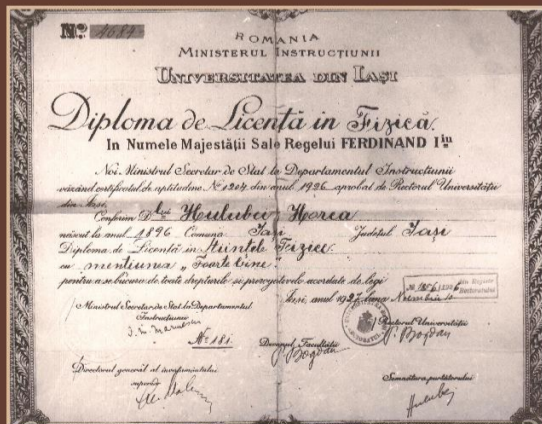 No. 4684
ROMANIA
MINISTERUL INSTRUCȚIUNII
UNIVERSITATEA DIN IAȘI
Diploma de Licență in Fizică.
In Numele Majestății Sale Regelui FERDINAND Iiu
Noi Ministrul Secretar de Stat la Departamentul Instrucțiunii
văzând certificatul de aptitudine No 1204 din anul 1926 aprobat de Rectorul Universității
din Iași.
Conferim Dlui Hulubei Horia
născut la anul 1896 Comuna Iași Județul Iași
Diploma de Licență in Științele Fizice
cu mențiunea „Foarte bine"
pentru a se bucura de toate drepturile și prerogativele acordate de legi
Iași, anul 1927 luna
Ministrul Secretar de Stat la Departamentul
Instrucțiunii
No. 181.
Decanul Facultății
P. Bogdan
Rectorul Universității
P. Bogdan
Directorul general al învățământului
superior
Semnătura purtătorului
Hulubei